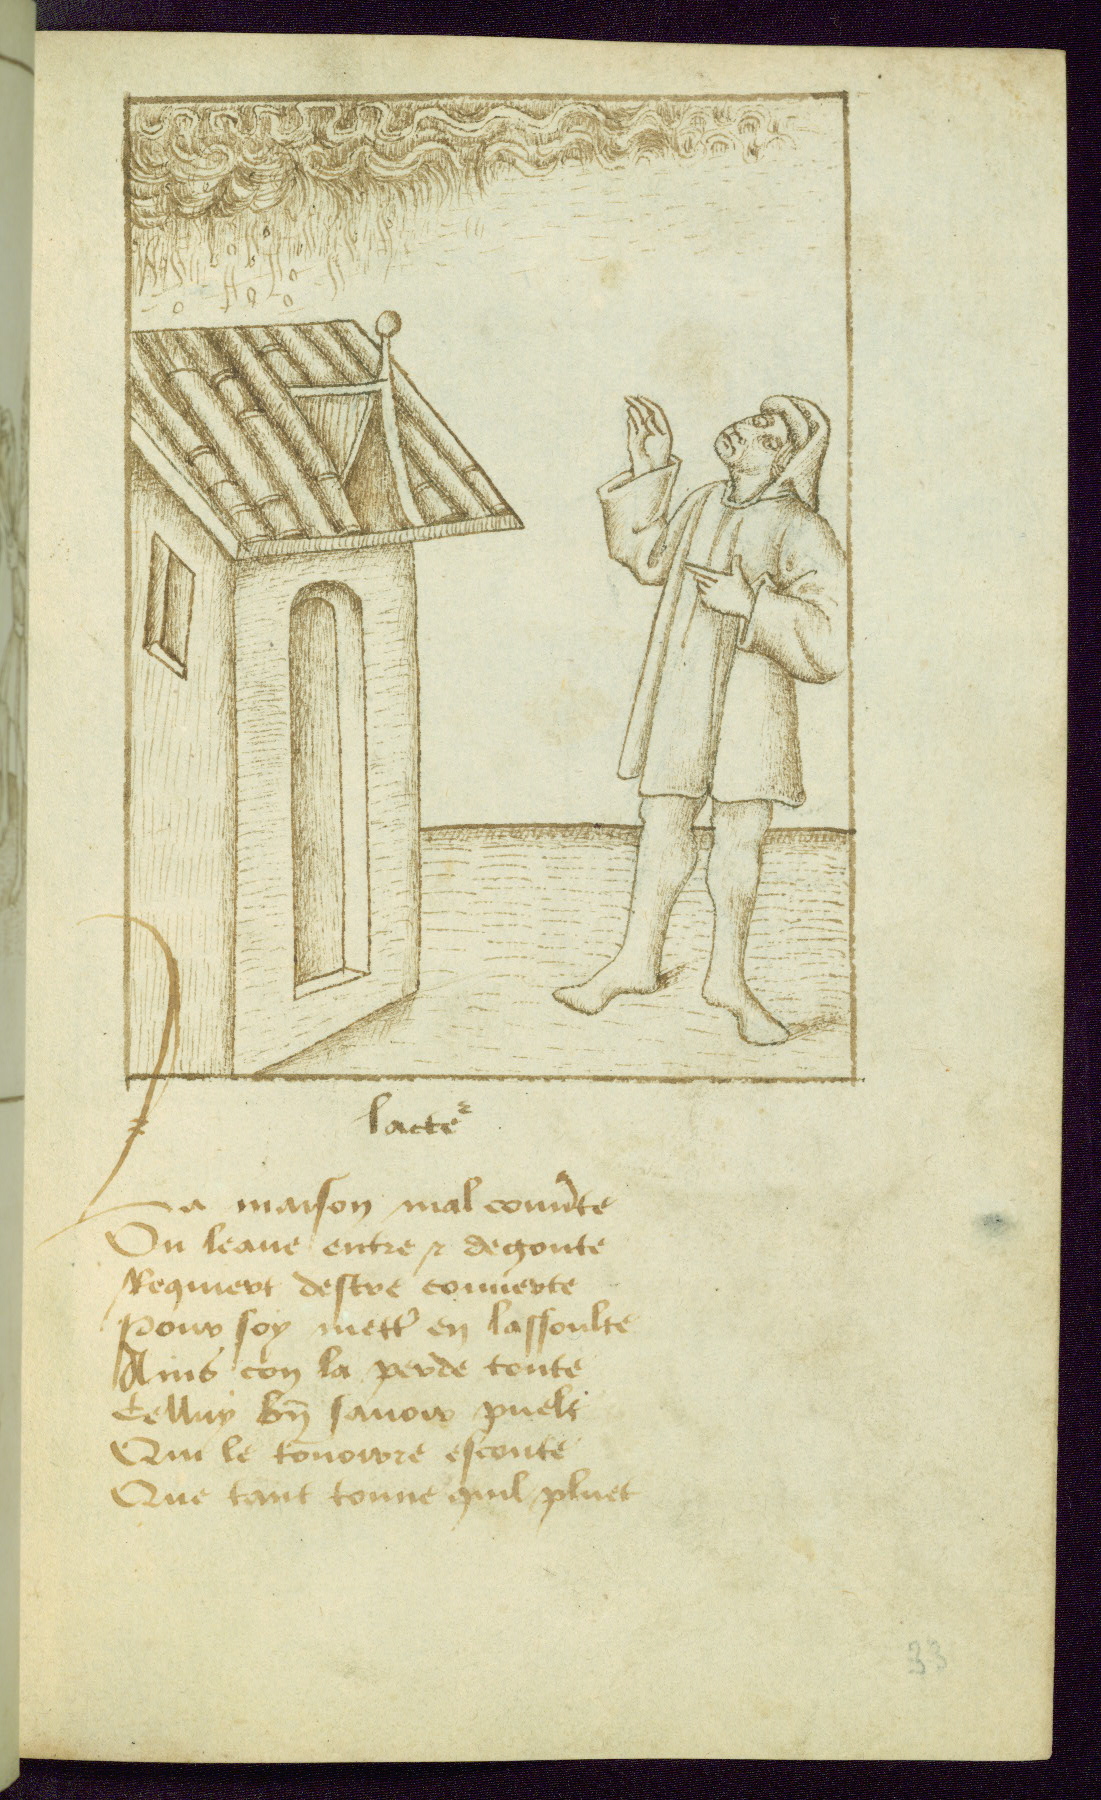 lacte^r
La maison mal couu'te
Ou leaue entre & degoute
Requiert destre couuerte
Pour soy mett' en lassoulte
Ains con la perde toute
Celluy bn̄ sauoir puelt
Qui le tōnoirre escoute
Que tant tonne quil pluet
33